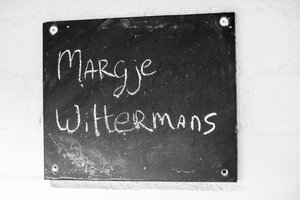 Margje
Wittermans